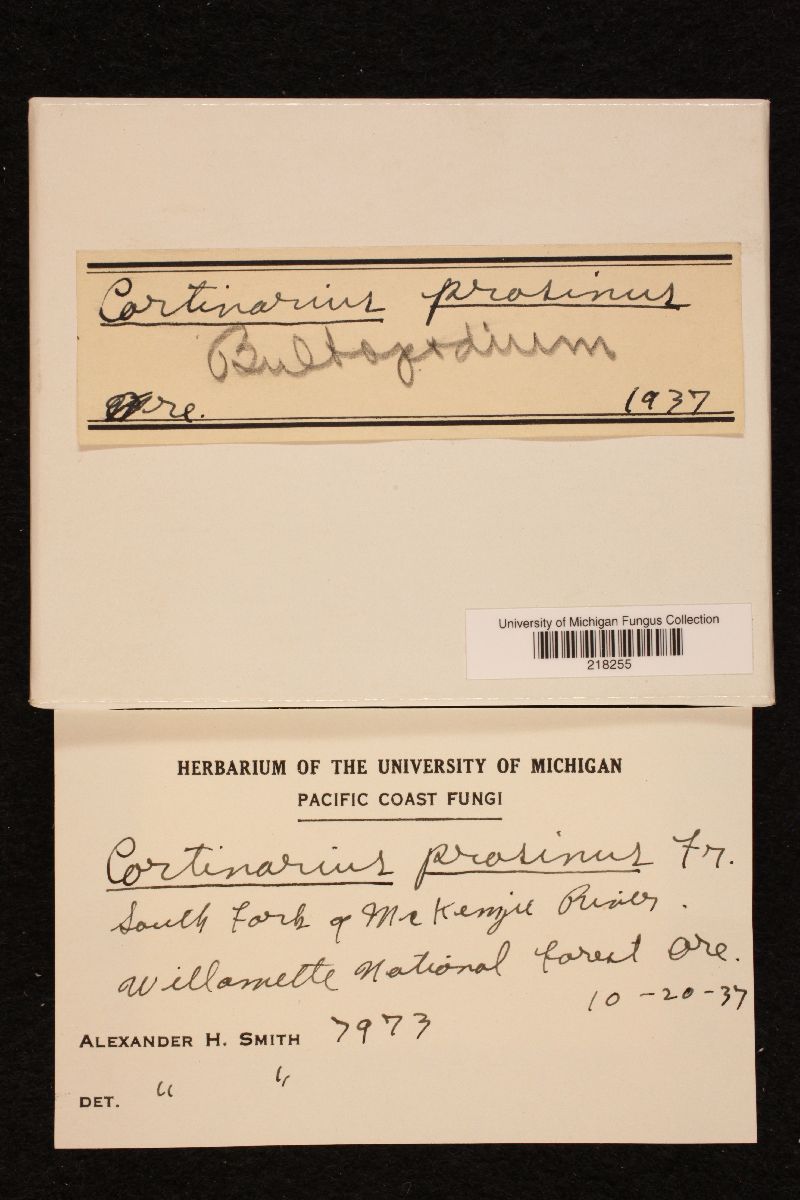 Cortinarius prasinus
Bulbopodium
Ore. 1937
University of Michigan Fungus Collection
218255
HERBARIUM OF THE UNIVERSITY OF MICHIGAN
PACIFIC COAST FUNGI
Cortinarius prasinus Fr.
South Fork of McKenzie River.
Willamette National forest Ore.
10-20-37
ALEXANDER H. SMITH 7973
DET. " "